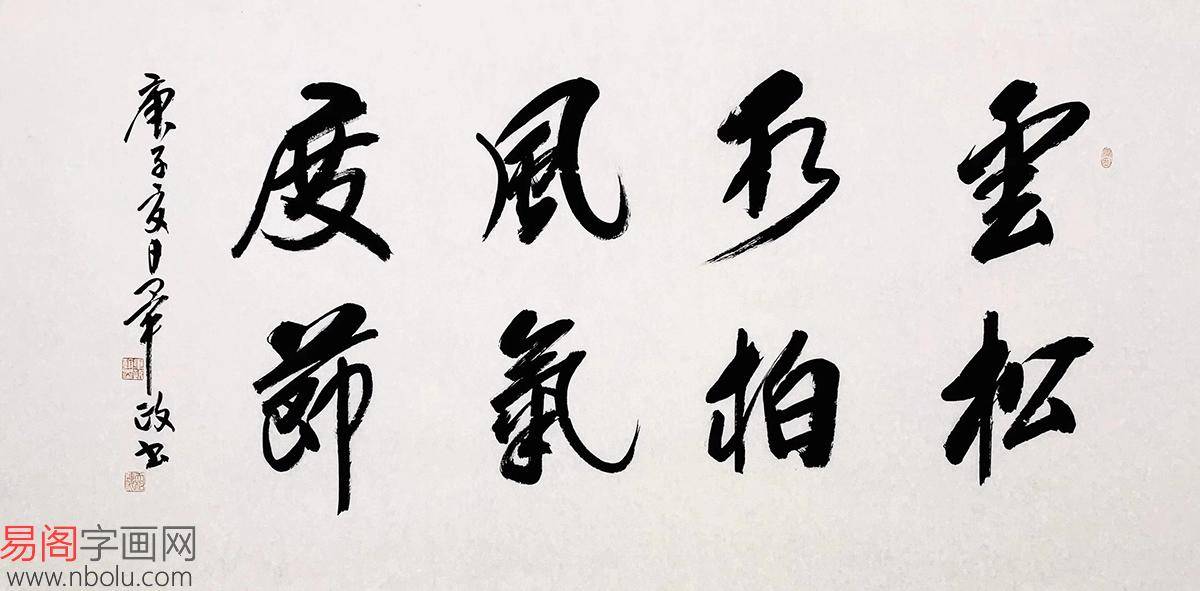 雲水風度
松柏氣節
庚子夏日政书
易阁字画网
www.nbolu.com